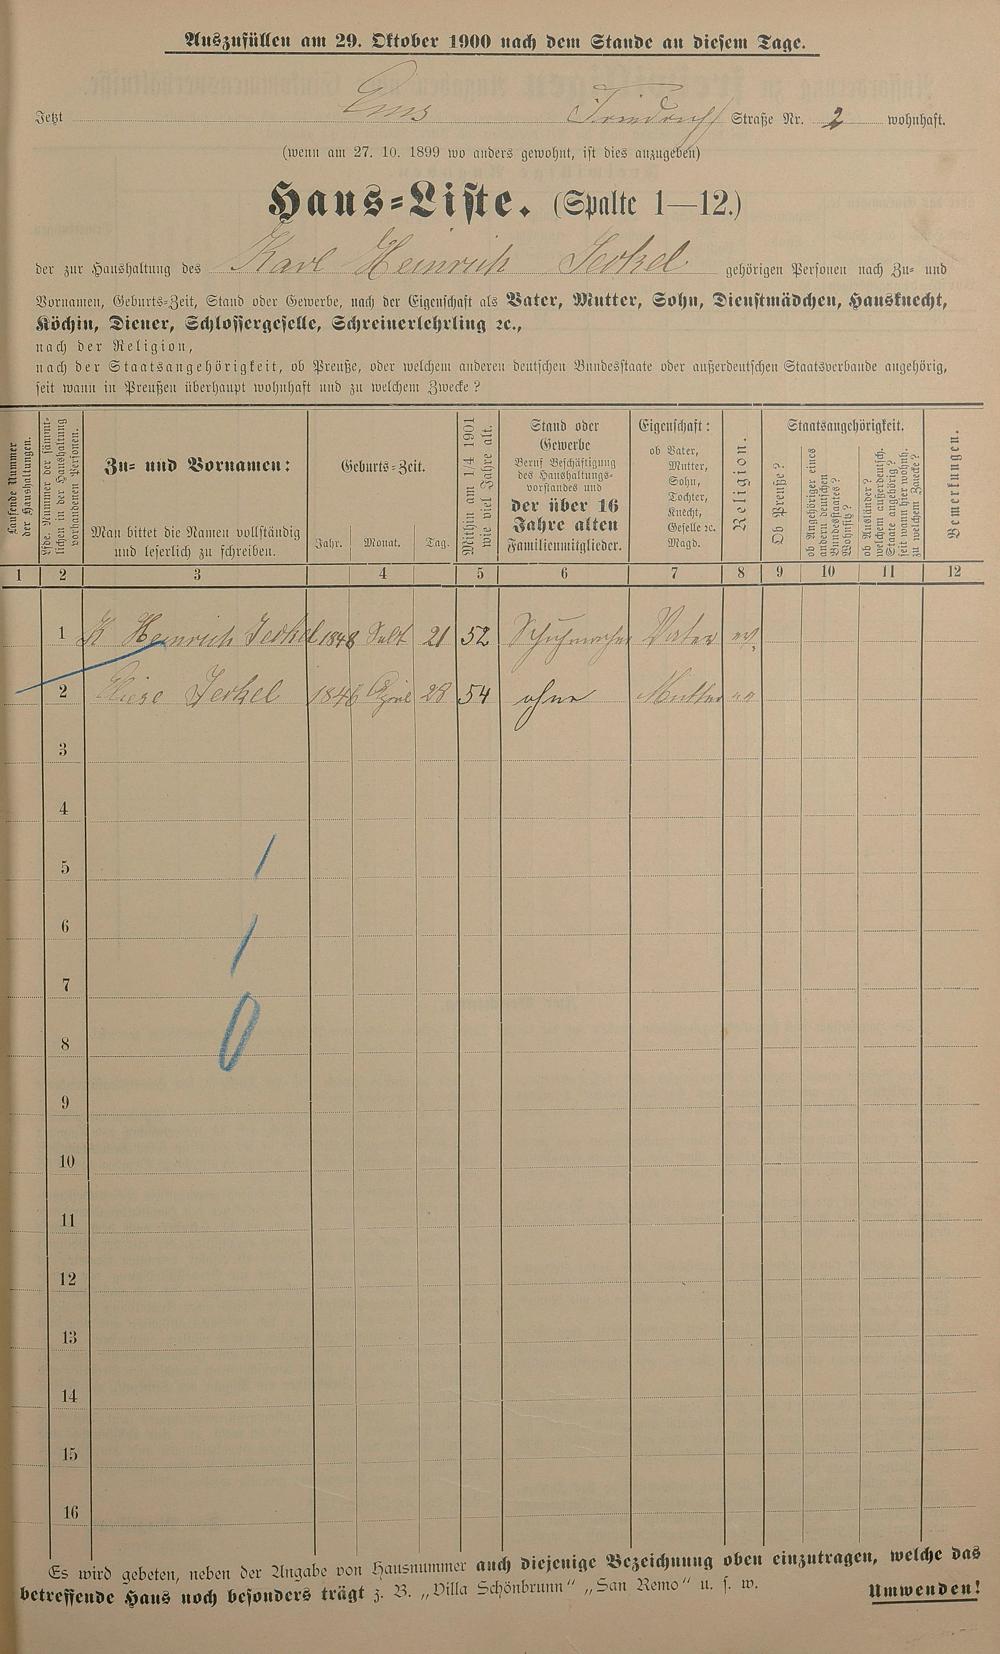 Auszufüllen am 29. Oktober 1900 nach dem Stande an diesem Tage.
Jetzt Ems Friedrich Straße Nr. 2 wohnhaft.
(wenn am 27. 10. 1899 wo anders gewohnt, ist dies anzugeben)
Haus-Liste. (Spalte 1—12.)
der zur Haushaltung des Karl Heinrich Jeckel gehörigen Personen nach Zu- und
Vornamen, Geburts-Zeit, Stand oder Gewerbe, nach der Eigenschaft als Vater, Mutter, Sohn, Dienstmädchen, Hausknecht,
Köchin, Diener, Schlossergeselle, Schreinerlehrling ꝛc.,
nach der Religion,
nach der Staatsangehörigkeit, ob Preuße, oder welchem anderen deutschen Bundesstaate oder außerdeutschen Staatsverbande angehörig,
seit wann in Preußen überhaupt wohnhaft und zu welchem Zwecke?
Laufende Nummer
der Haushaltungen.
Lfde. Nummer der sämmt-
lichen in der Haushaltung
vorhandenen Personen.
Zu- und Vornamen:
Man bittet die Namen vollständig
und leserlich zu schreiben.
Geburts-Zeit.
Jahr. Monat. Tag.
Mithin am 1/4 1901
wie viel Jahre alt.
Stand oder
Gewerbe
Beruf Beschäftigung
des Haushaltungs-
vorstandes und
der über 16
Jahre alten
Familienmitglieder.
Eigenschaft:
ob Vater,
Mutter,
Sohn,
Tochter,
Knecht,
Geselle ꝛc.
Magd.
Religion.
Staatsangehörigkeit.
Ob Preuße?
ob Angehöriger eines
andern deutschen
Bundesstaates?
Wohnsitz?
ob Ausländer?
welchem außerdeutsch.
Staate angehörig?
seit wann hier wohnh.
zu welchem Zwecke?
Bemerkungen.
1 2 3 4 5 6 7 8 9 10 11 12
1 K Heinrich Jeckel 1848 21 52 Schuhmacher Vater ev.
2 Eliese Jeckel 1846 April 28 54 ohne Mutter "
3
4
5
6
7
8
9
10
11
12
13
14
15
16
Es wird gebeten, neben der Angabe von Hausnummer auch diejenige Bezeichnung oben einzutragen, welche das
betreffende Haus noch besonders trägt z. B. „Villa Schönbrunn“ „San Remo“ u. s. w.
Umwenden!